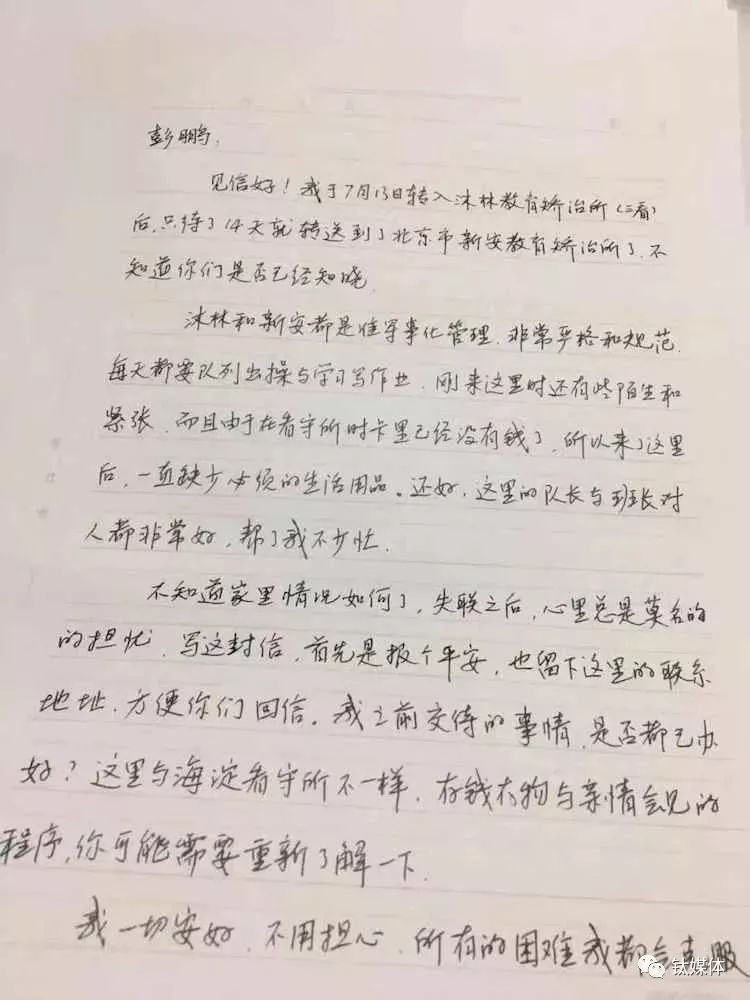 彭鹏,
见信好！我于7月13日转入沐林教育矫治所（三看）
后,只待了14天就转送到了北京市新安教育矫治所了.不
知道你们是否已经知晓.
沐林和新安都是准军事化管理.非常严格和规范.
每天都要队列出操与学习写作业.刚来这里时还有些陌生和
紧张.而且由于在看守所时卡里已经没有钱了.所以来了这里
后,一直缺少必须的生活用品。还好,这里的队长与班长对
人都非常好,帮了我不少忙.
不知道家里情况如何了,失联之后,心里总是莫名的
的担忧.写这封信,首先是报个平安,也留下这里的联系
地址.方便你们回信。我之前交待的事情.是否都已办
好？这里与海淀看守所不一样.存钱存物与亲情会见的
程序,你可能需要重新了解一下.
我一切安好.不用担心.所有的困难我都会克服
钛媒体